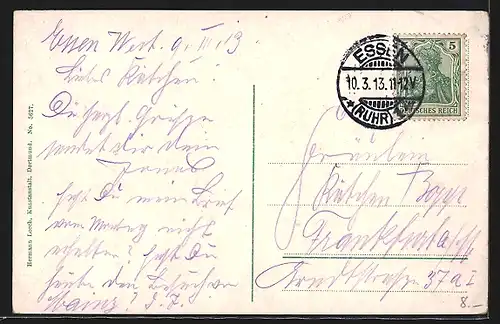 Essen West. 9. III. 13
Liebes Käthchen!
Du hergl. Grüsse
sendet dir dein
Jonas
hast Du mein Brief
vom Montag nicht
erhalten? hast Du
heute den Besuch v.
Mainz? D. J.
Hermann Lorch, Kunstanstalt, Dortmund. No. 3627.
ESSEN
10.3.13.11-12V.
(RUHR)
5
DEUTSCHES REICH
Fräulein
Käthchen Bopp
Frankfurt a/M
Arndtstrasse 37a I
8.-